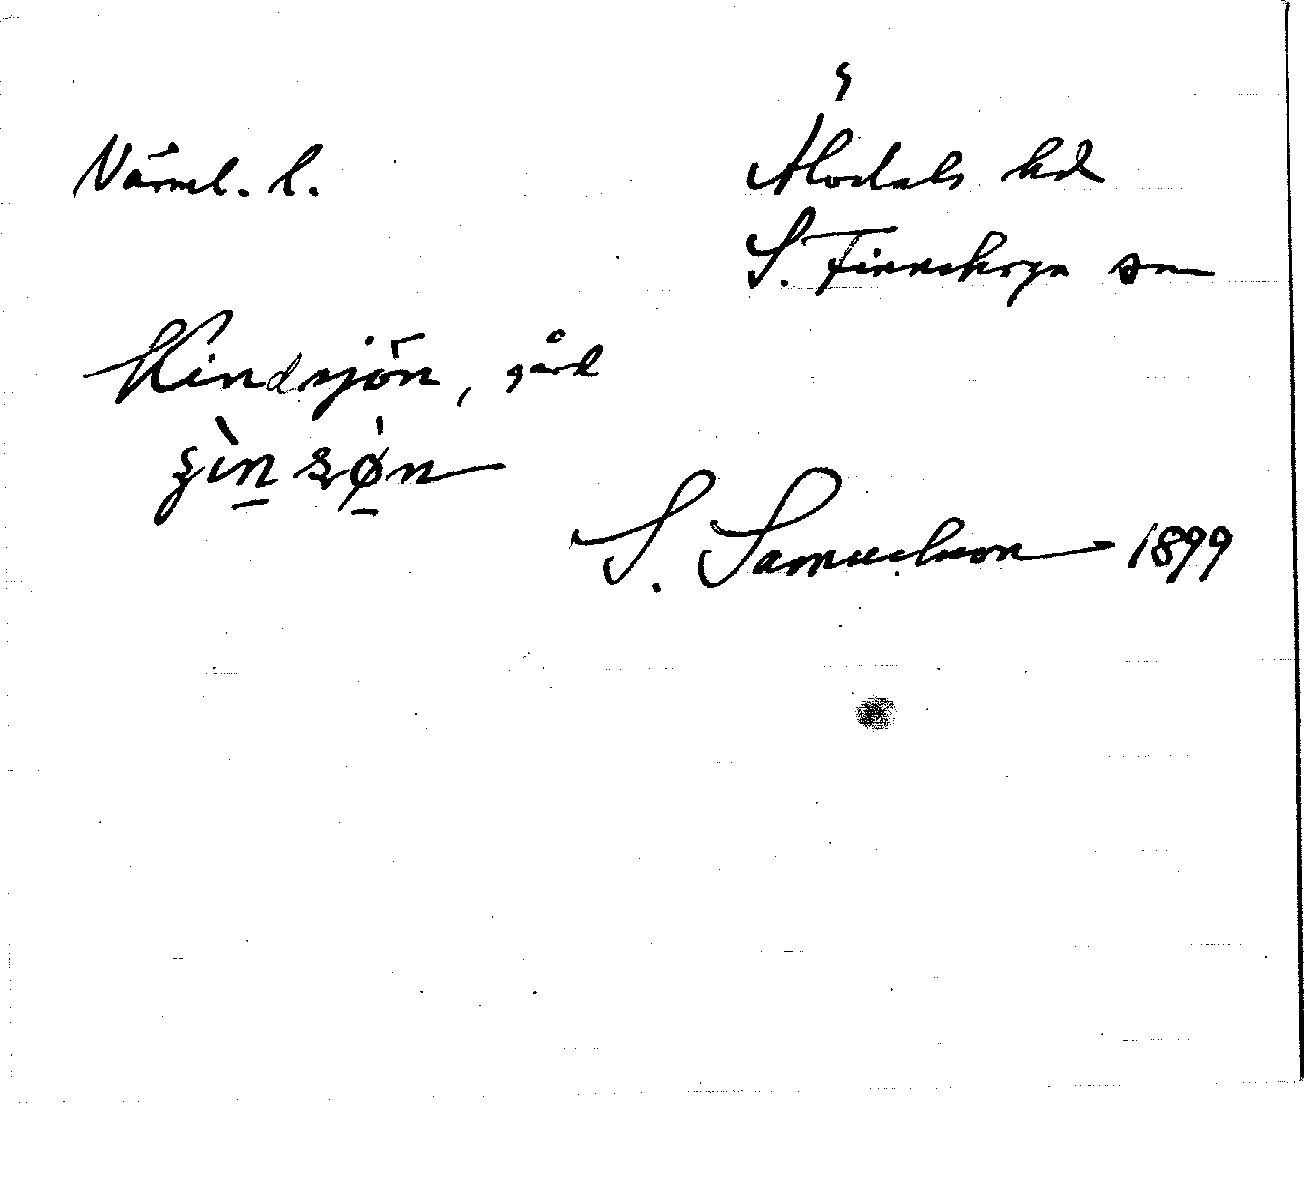 Värml. l.
Älvdals hd
S. Finnskoga sn
Kindsjön, gård
S. Samuelsson 1899